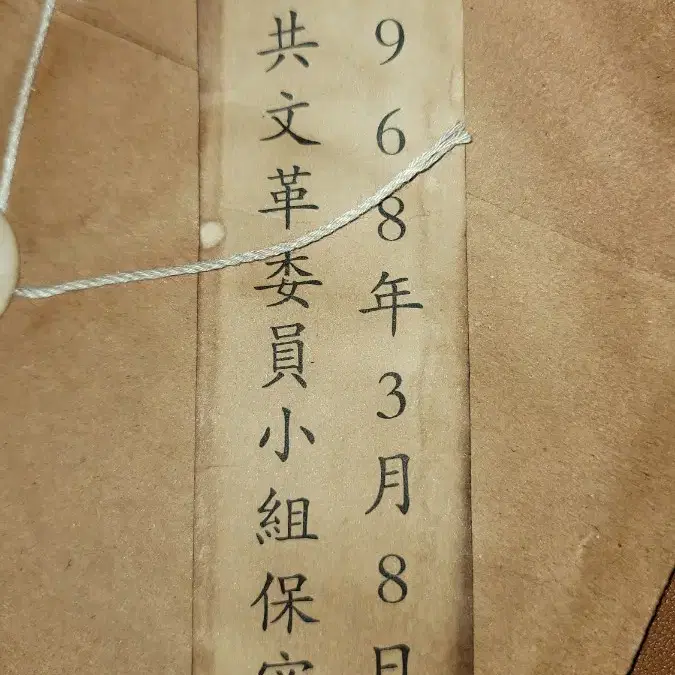 968年3月8日
共文革委員小組保